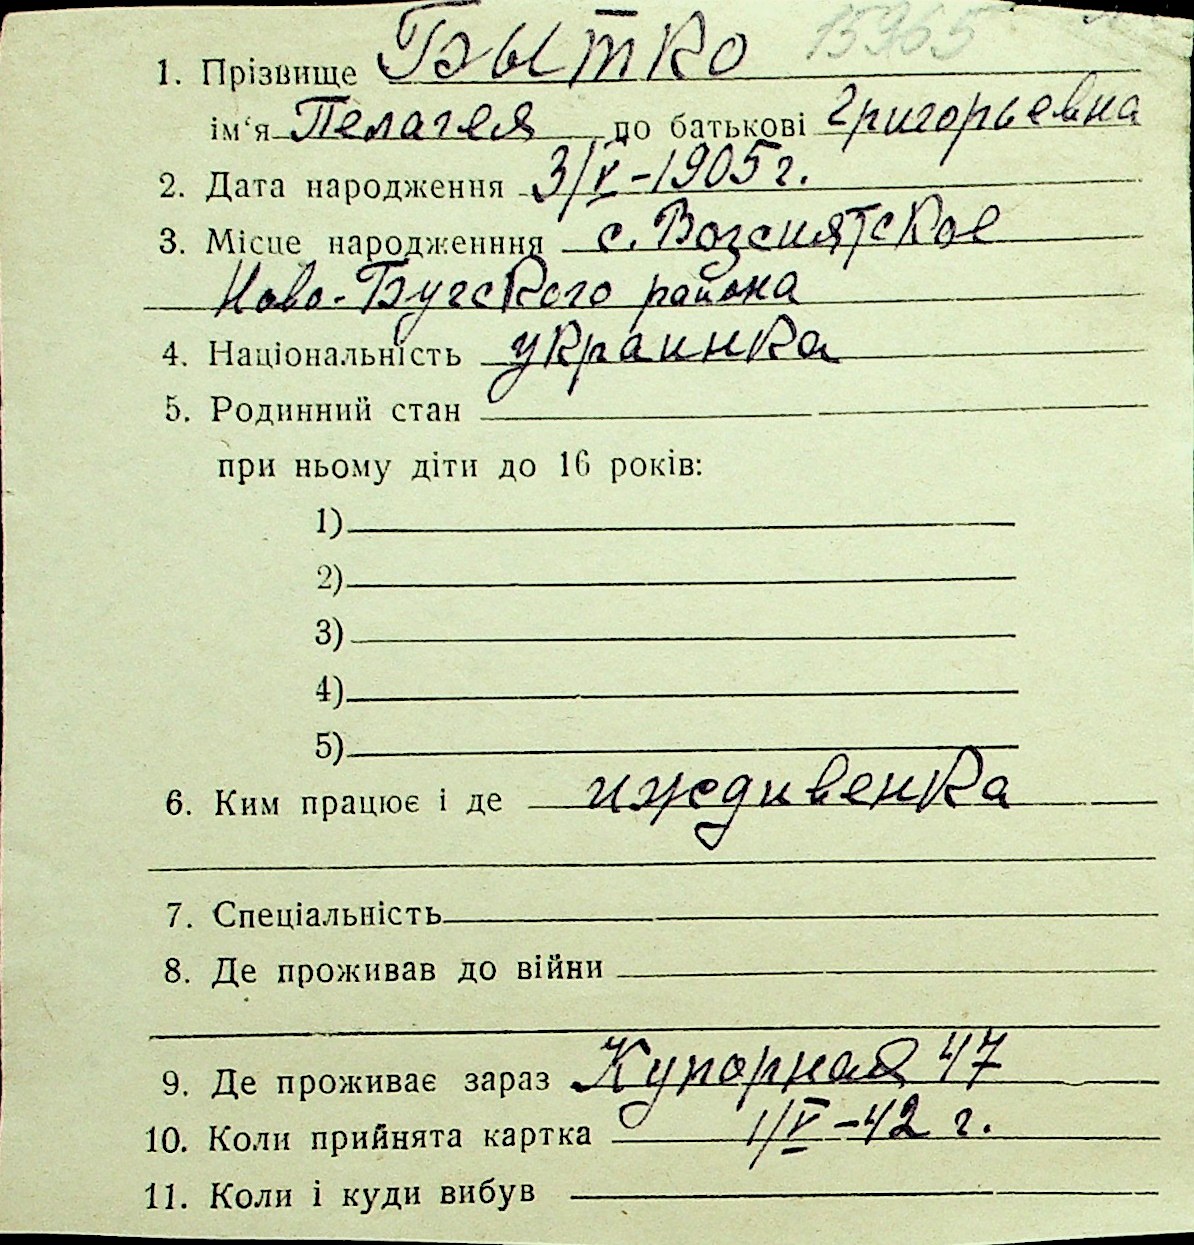 15965
1. Прізвище Бытко
ім‘я Пелагея по батькові Григорьевна
2. Дата народження 3/V-1905 г.
3. Місце народженння с. Возсиятское
Ново-Бугского района
4. Національність украинка
5. Родинний стан
при ньому діти до 16 років:
1)
2)
3)
4)
5)
6. Ким працює і де иждивенка
7. Спеціальність
8. Де проживав до війни
9. Де проживає зараз Купорная 47
10. Коли прийнята картка 1/V-42 г.
11. Коли і куди вибув